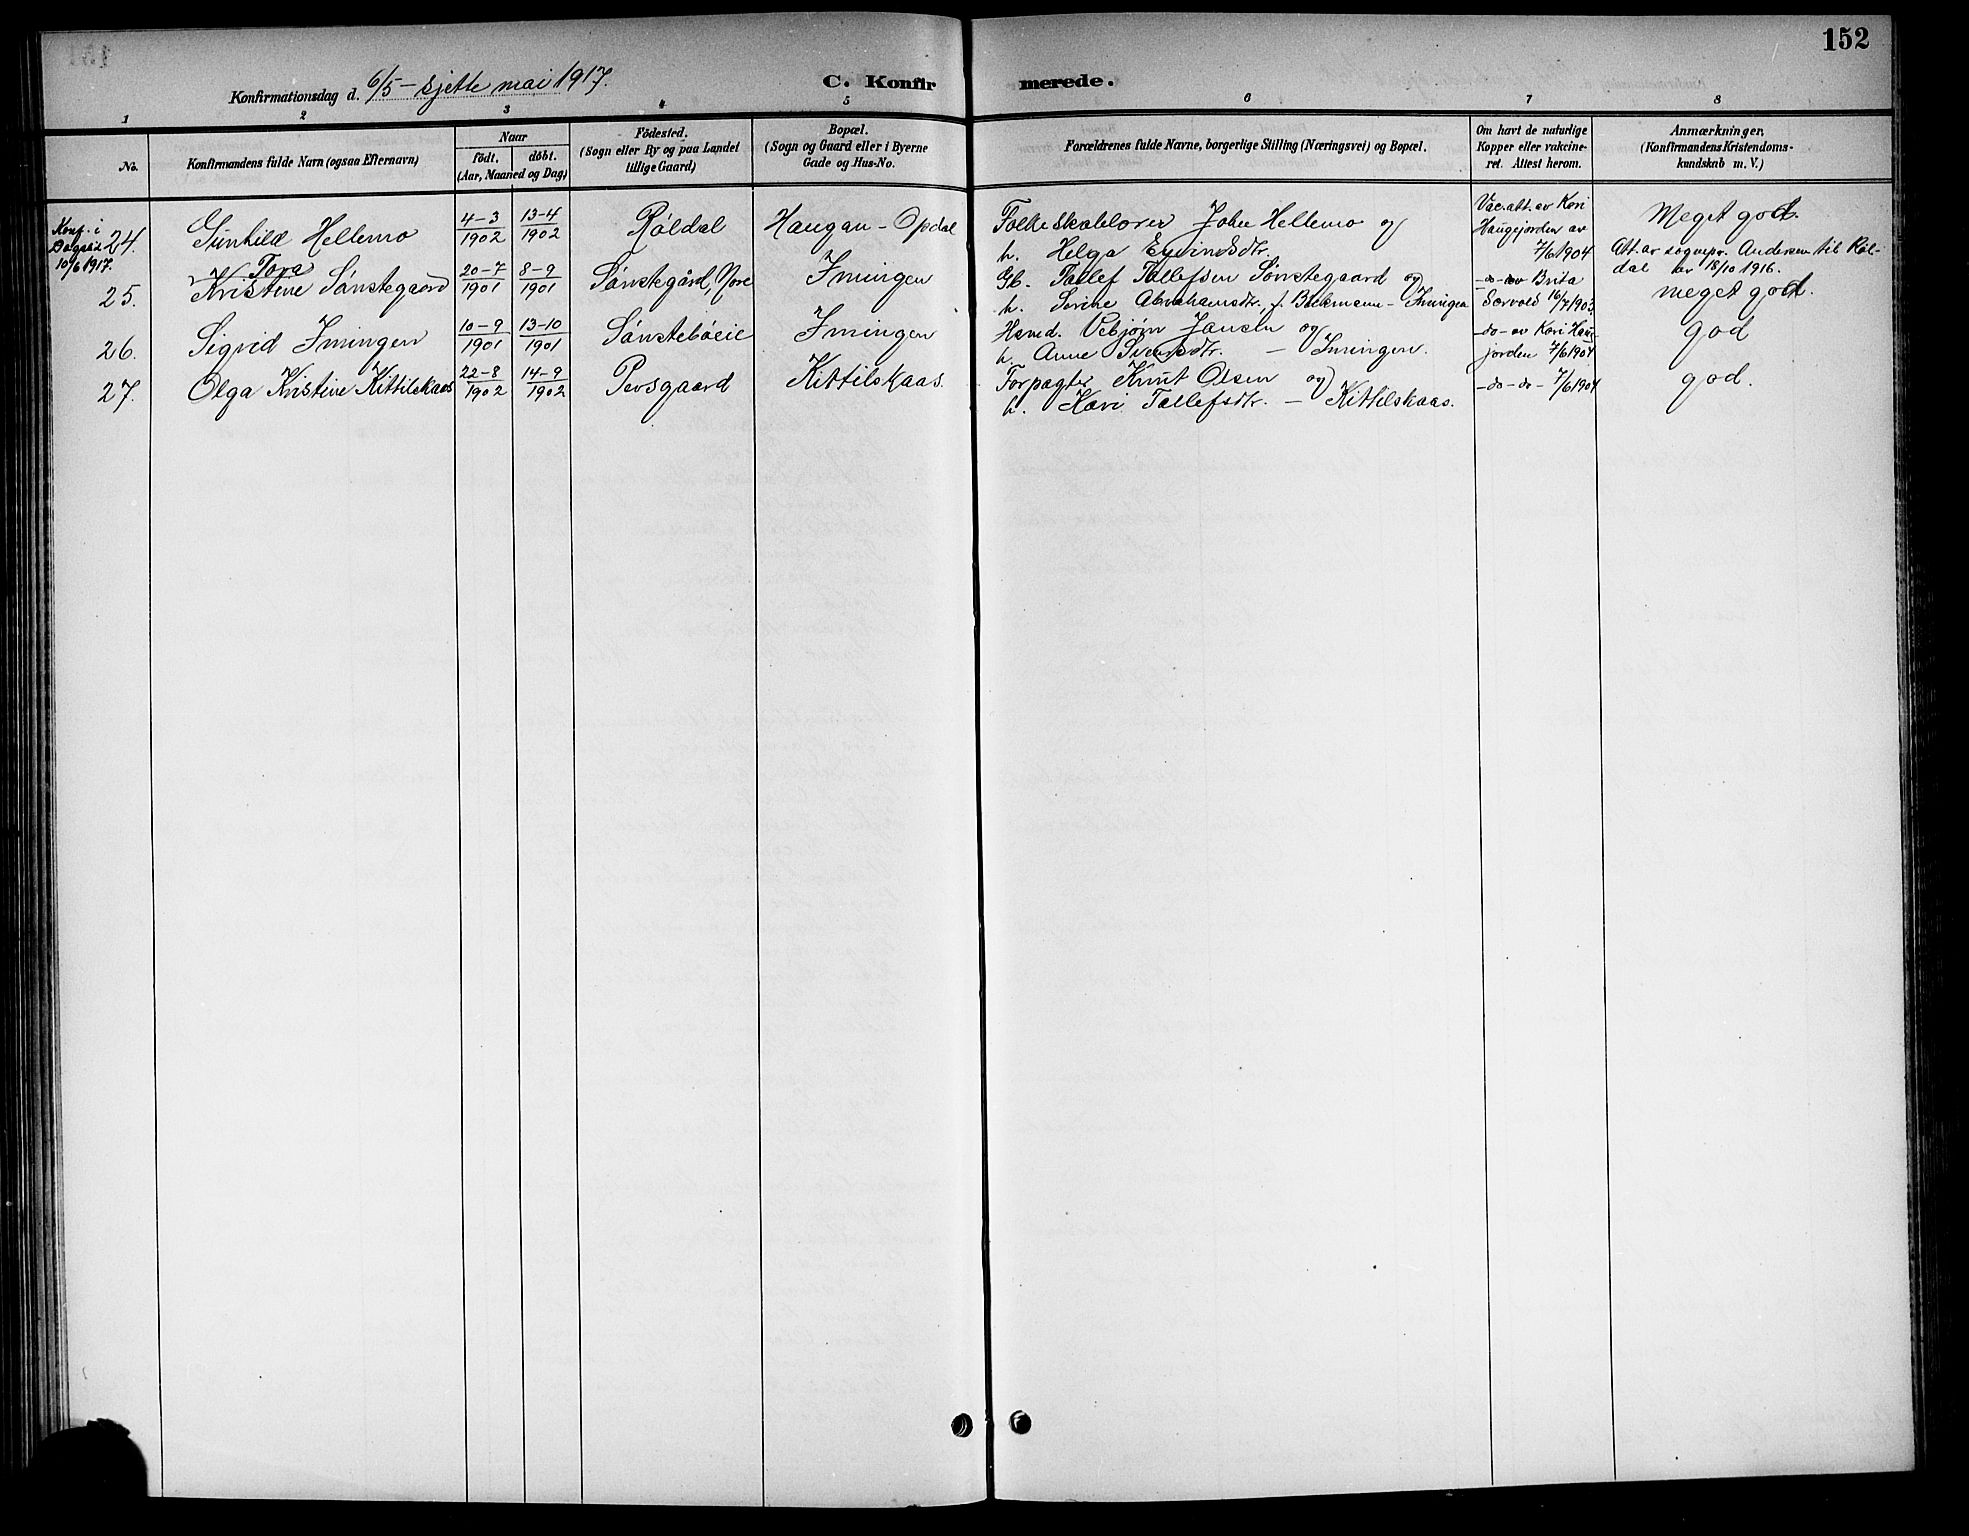 152
Konfirmationsdag d. 6/5 – sjette mai 1917.
C. Konfirmerede.
1 2 3 4 5 6 7 8
No.
Konfirmandens fulde Navn (ogsaa Efternavn)
Naar
födt. döbt.
(Aar, Maaned og Dag)
Födested.
(Sogn eller By og paa Landet
tillige Gaard)
Bopæl.
(Sogn og Gaard eller i Byerne
Gade og Hus-No.
Forældrenes fulde Navne, borgerlige Stilling (Næringsvei) og Bopæl.
Om havt de naturlige
Kopper eller vakcine-
ret. Attest herom.
Anmærkninger.
(Konfirmandens Kristendoms-
kundskab m. V.)
Konf. i
10/6 1917.
24. Gunhild Hellemo 4–3 1902 13–4 1902 Röldal Haugan – Opdal
Folkeskolelærer John Hellemo og
h. Helga Eyvindsdtr.
Vac.att. av Kari
Haugejorden av
7/6 1904
Meget god.
Att. av sognepr. Andersen til Röl-
dal av 18/10 1916.
25. Kristine Tora Sönstegaard 20–7 1901 8–9 1901 Sönstegård, Nore Imingen
Gb. Tollef Tollefsen Sönstegaard og
h. Sirine Abrahamsdtr. f. – Imingen
– do – av Brita
Sørvold 16/7 1903.
meget god.
26. Sigrid Imingen 10–9 1901 13–10 1901 Sönsteböeie Imingen
Hsmd. Vebjörn Jansen og
h. Anne Svensdtr. – Imingen.
– do – av Kari Hau-
jorden 7/6 1904
god
27. Olga Kristine Kittilskaas 22–8 1902 14–9 1902 Pevsgaard Kittilskaas.
Forpagter Knut Olsen og
h. Kari Tollefsdtr. – Kittilskaas.
– do – do – 7/6 1904
god.